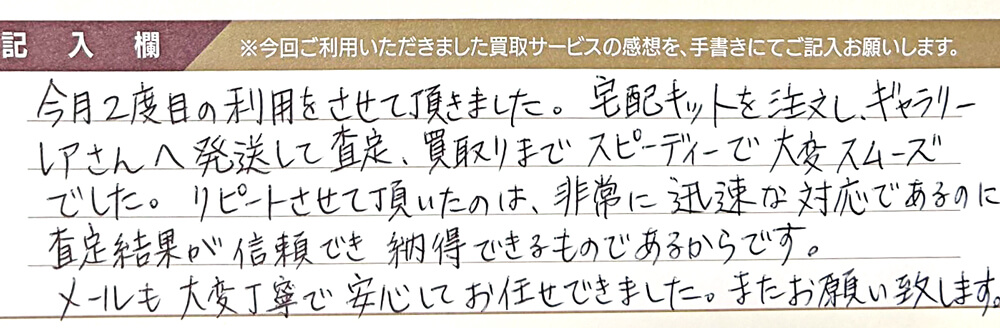 記入欄
※今回ご利用いただきました買取サービスの感想を、手書きにてご記入お願いします。
今月2度目の利用をさせて頂きました。宅配キットを注文し、ギャラリー
レアさんへ発送して査定、買取りまでスピーディーで大変スムーズ
でした。リピートさせて頂いたのは、非常に迅速な対応であるのに
査定結果が信頼でき納得できるものであるからです。
メールも大変丁寧で安心してお任せできました。またお願い致します。